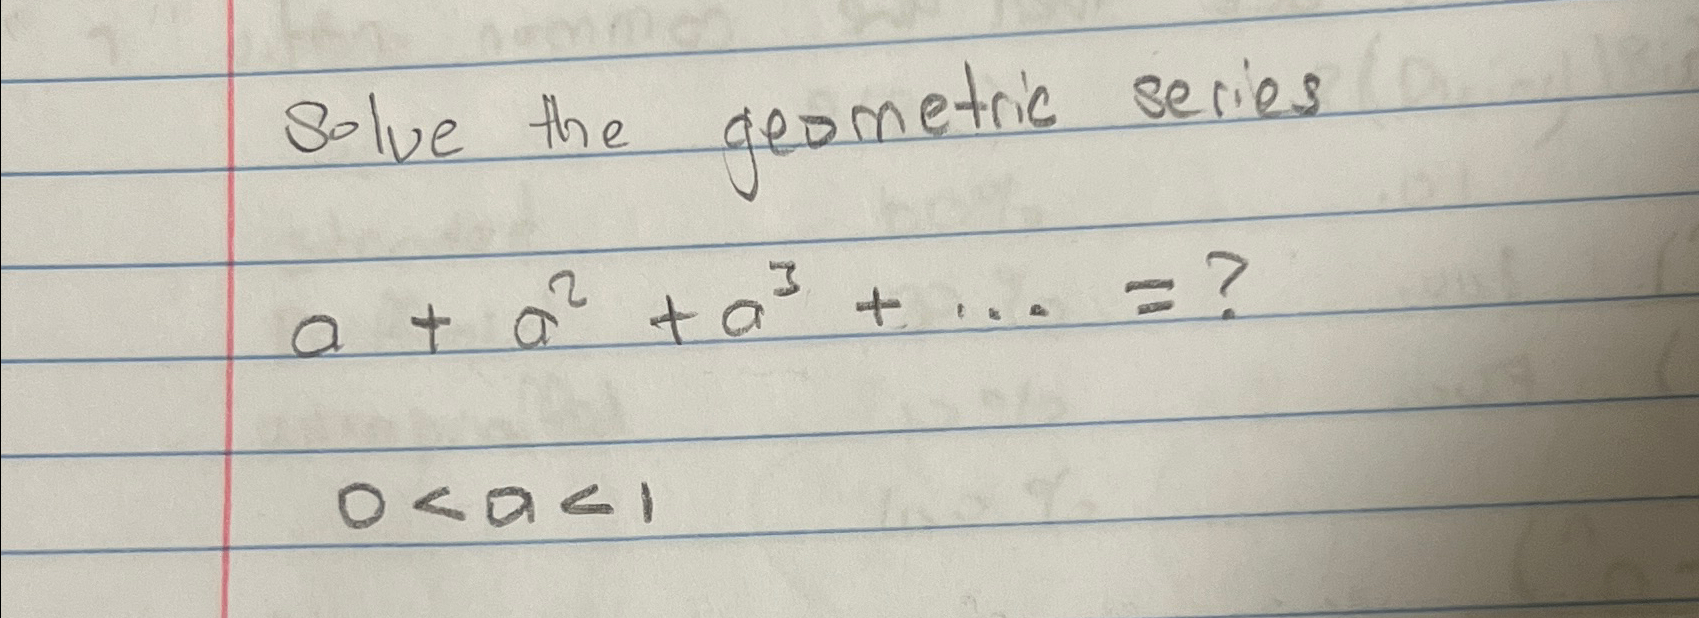 Solve the geometric series
a + a² + a³ + ... = ?
0 < a < 1